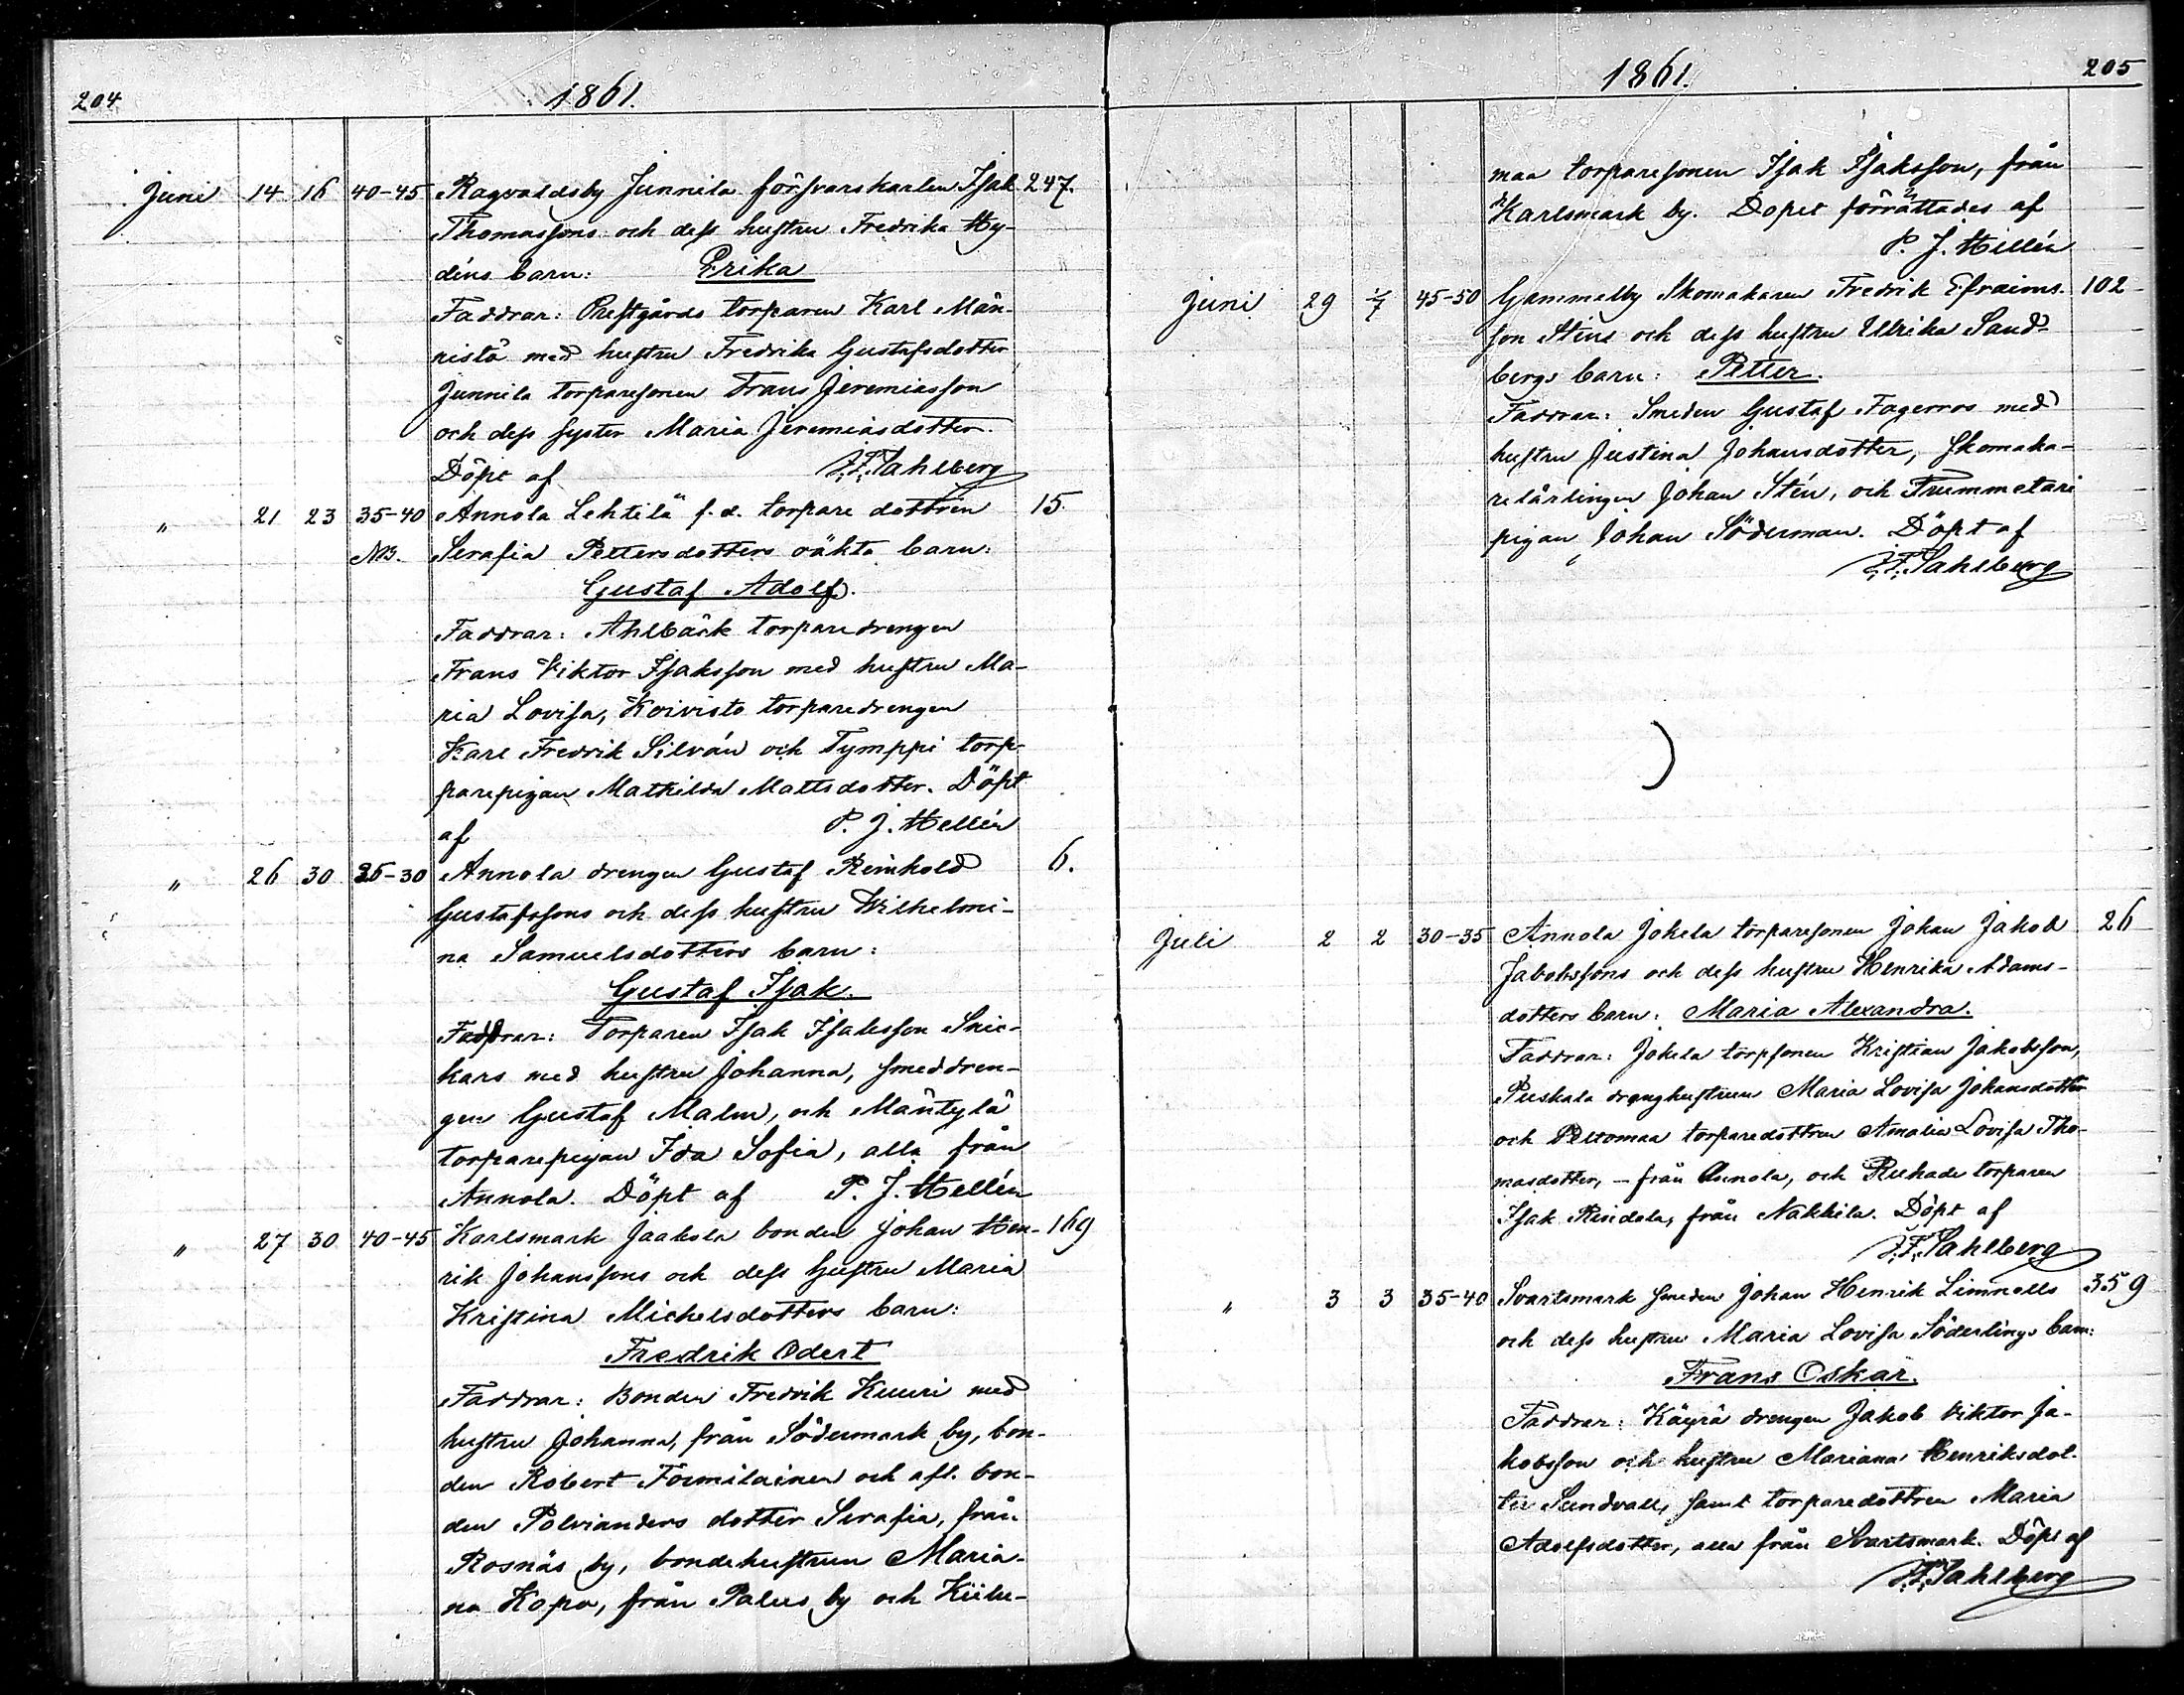 204
1861.
Juni 14 16 40-45 Ragvaldsby Junnila försvarskarlen Isak 247.
Thomassons och dess hustru Fredrika Hy-
déns barn: Erika
Faddrar: Prestgårds torparen Karl Män-
nistö med hustru Fredrika Gustafsdotter
Junnila torparesonen Frans Jeremiasson
och dess syster Maria Jeremiasdotter.
Döpt af F. Sahlberg
" 21 23 35-40 Annola Lehtilä f.d. torpare dottren 15.
NB. Serafia Pettersdotters oäkta barn:
Gustaf Adolf.
Faddrar: Ahlbäck torparedrengen
Frans Viktor Isaksson med hustru Ma-
ria Lovisa, Koivisto torparedrengen
Karl Fredrik Silván och Tymppi torp-
parepigan Mathilda Mattsdotter. Döpt
af P. J. Hellén
" 26 30 25-30 Annola drengen Gustaf Reinhold 6.
Gustafssons och dess hustru Wilhelmi-
na Samuelsdotters barn:
Gustaf Isak.
Faddrar: Torparen Isak Isaksson Snic-
kars med hustru Johanna, smeddren-
gen Gustaf Malm, och Mäntylä
torparepigan Ida Sofia, alla från
Annola. Döpt af P. J. Hellén
" 27 30 40-45 Karlsmark Jaakola bonden Johan Hen- 169
rik Johanssons och dess hustru Maria
Kristina Michelsdotters barn:
Fredrik Edert
Faddrar: Bonden Fredrik Kuuri med
hustru Johanna, från Södermark by, bon-
den Robert och afl. bon-
den Polvianders dotter Serafia, från
Rosnäs by, bondehustrun Maria-
na Kopo, från Palus by och Kiilu-
1861.
205
maa torparesonen Isak Isaksson, från
Karlsmark by. Dopet förrättades af
P. J. Hellén
Juni 29 1/7 45-50 Gammelby Skomakaren Fredrik Efraims- 102
son Sténs och dess hustru Ulrika Sand-
bergs barn: Petter.
Faddrar: Smeden Gustaf Fagerros med
hustru Justina Johansdotter, Skomaka-
relärlingen Johan Stén, och Trummetari
pigan Johan Söderman. Döpt af
F. Sahlberg
Juli 2 2 30-35 Annola Jokela torparesonen Johan Jakob 26
Jakobssons och dess hustru Henrika Adams-
dotters barn: Maria Alexandra.
Faddrar: Jokela torpsonen Kristian Jakobsson,
Puskala drenghustrun Maria Lovisa Johansdotter
och Peltomaa torparedottren Amalia Lovisa Tho-
masdotter, – från Annola, och torparen
Isak från Nakkila. Döpt af
F. Sahlberg
" 3 3 35-40 Svartsmark smeden Johan Henrik Limnells 359
och dess hustru Maria Lovisa Söderlings barn:
Frans Oskar.
Faddrar: Käyrä drengen Jakob Viktor Ja-
kobsson och hustru Mariana Henriksdot-
ter Sundvall, samt torparedottren Maria
Adolfsdotter, alla från Svartsmark. Döpt af
F. Sahlberg